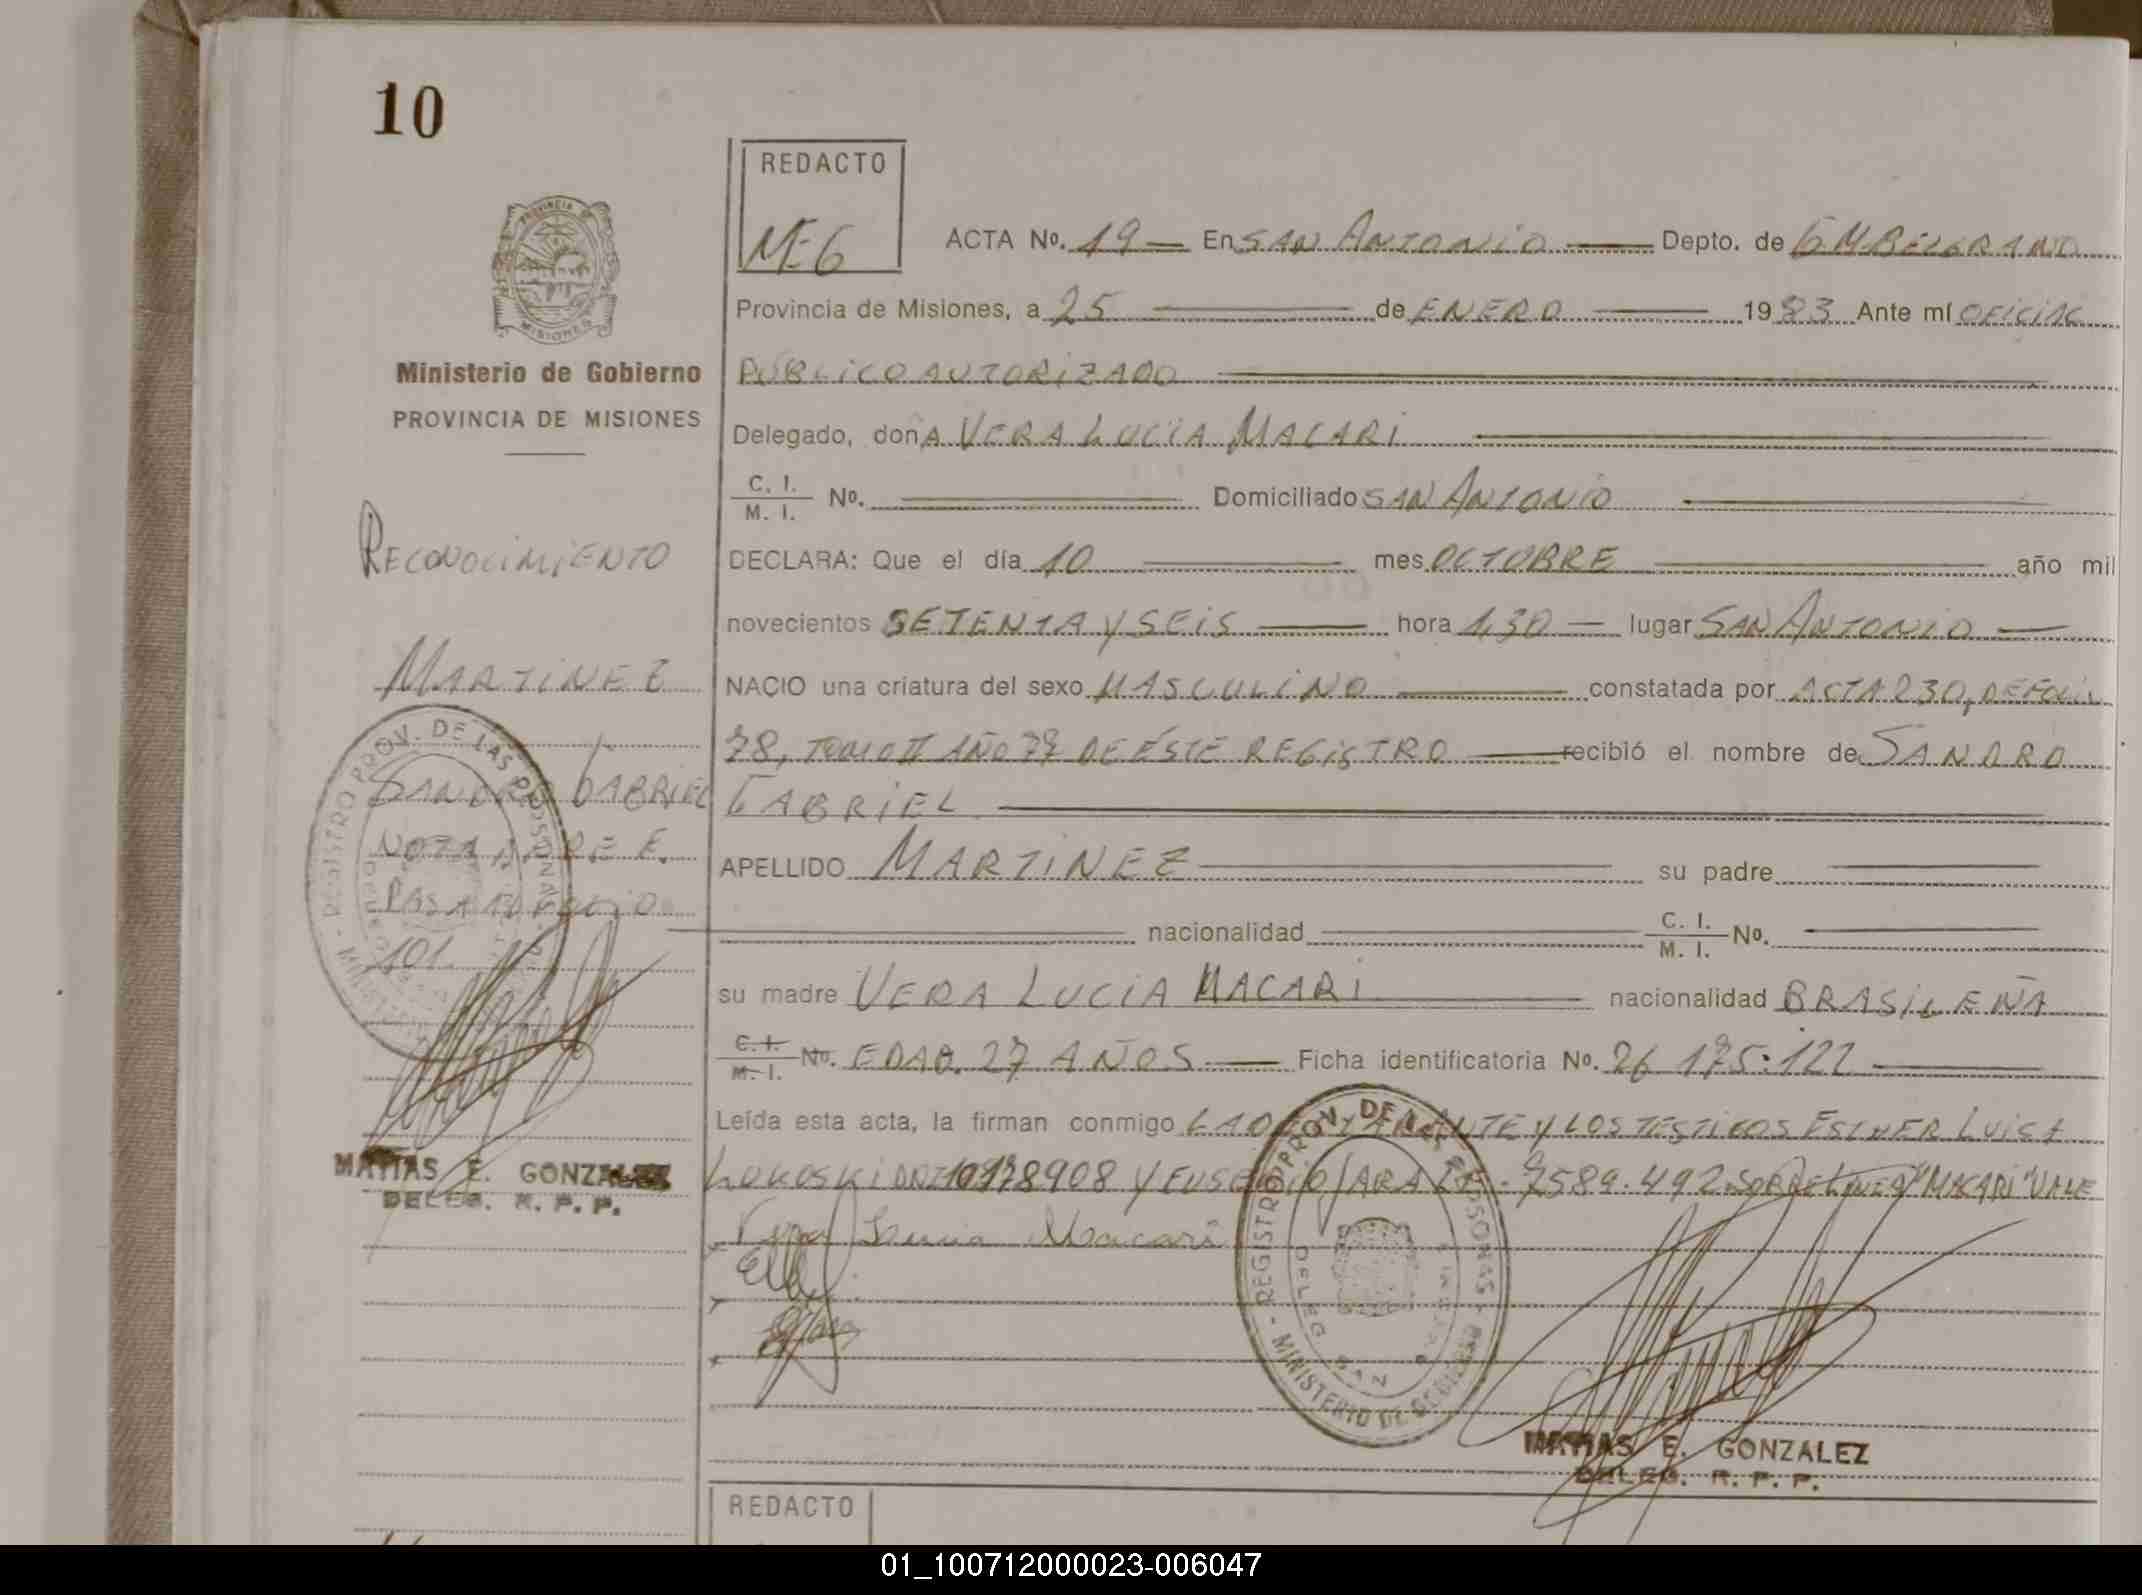 10
REDACTO
M-E6
ACTA No. 19 En SAN ANTONIO Depto. de G.M.BELGRANO
Provincia de Misiones, a 25 de ENERO 1983 Ante mí OFICIAL
PÚBLICO AUTORIZADO
Delegado, donA VERA LUCIA MACARI
C. I.
M. I. No. Domiciliado SAN ANTONIO
DECLARA: Que el día 10 mes OCTUBRE año mil
novecientos SETENTA Y SEIS hora 1,30 lugar SAN ANTONIO
NACIO una criatura del sexo MASCULINO constatada por ACTA 230, DE FOLIO
78, TOMO II AÑO 77 DE ÉSTE REGISTRO recibió el nombre de SANDRO
GABRIEL
APELLIDO MARTINEZ su padre
nacionalidad C. I. M. I. No.
su madre VERA LUCIA MACARI nacionalidad BRASILEÑA
C. I. M. I. No. EDAD. 27 AÑOS Ficha identificatoria No. 26 175.122
Leída esta acta, la firman conmigo LA DECLARANTE Y LOS TESTIGOS ESTHER LUISA
Y EUSEBIO JARA 7.589.492. SOBRE LINEA "MACARI" VALE
Vera Lucia Macari
MATIAS E. GONZALEZ
DELEG. R. P. P.
PROVINCIA DE
MISIONES
Ministerio de Gobierno
PROVINCIA DE MISIONES
RECONOCIMIENTO
MARTINEZ
SANDRO GABRIEL
NOTA DE REF.
PASA AL FOLIO
101.
REGISTRO PROV. DE LAS PERSONAS
MATIAS E. GONZALEZ
DELEG. R. P. P.
REGISTRO PROV. DE LAS PERSONAS - MINISTERIO DE GOBIERNO
DELEG. SAN
REDACTO
01_100712000023-006047